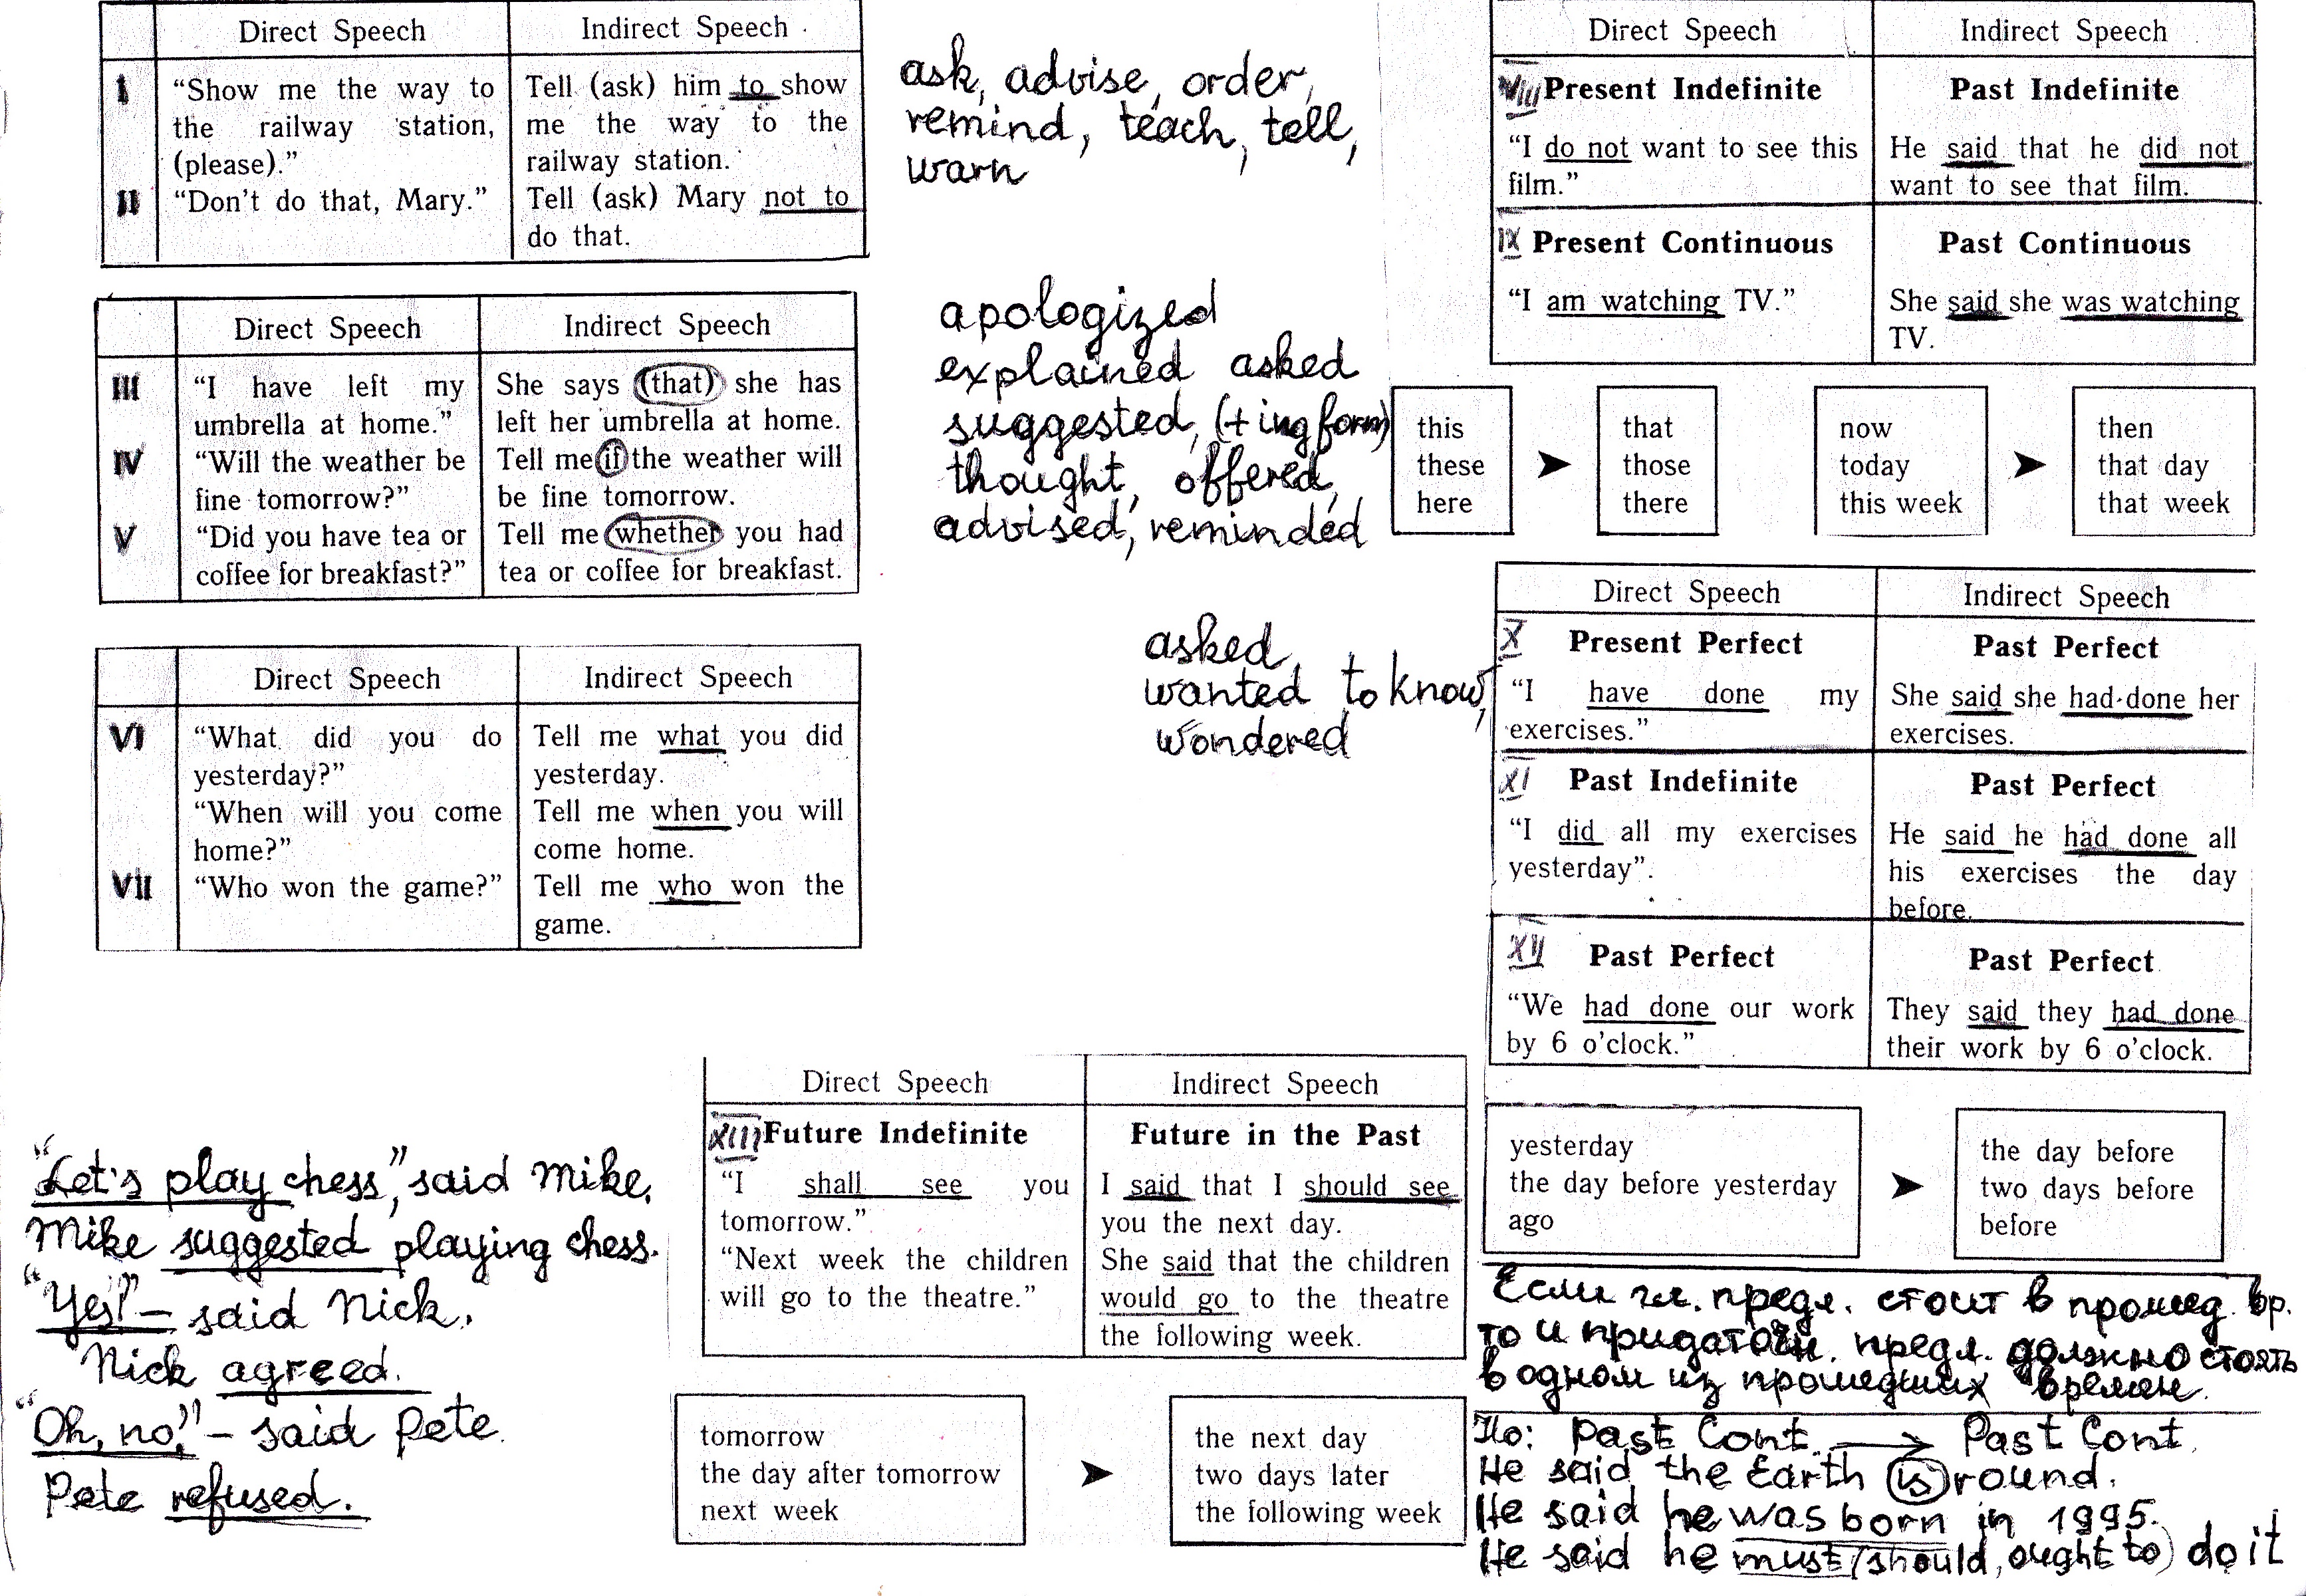 Direct Speech Indirect Speech
I "Show me the way to Tell (ask) him to show
the railway station, me the way to the
(please)." railway station.
II "Don't do that, Mary." Tell (ask) Mary not to
do that.
ask, advise, order,
remind, teach, tell,
warn
Direct Speech Indirect Speech
III "I have left my She says (that) she has
umbrella at home." left her umbrella at home.
IV "Will the weather be Tell me if the weather will
fine tomorrow?" be fine tomorrow.
V "Did you have tea or Tell me whether you had
coffee for breakfast?" tea or coffee for breakfast.
apologized
explained asked
suggested, (+ ing form)
thought, offered,
advised, reminded
Direct Speech Indirect Speech
VI "What did you do Tell me what you did
yesterday?" yesterday.
"When will you come Tell me when you will
home?" come home.
VII "Who won the game?" Tell me who won the
game.
asked,
wanted to know,
wondered
"Let's play chess," said Mike.
Mike suggested playing chess.
"Yes!" – said Nick.
Nick agreed.
"Oh, no!" – said Pete.
Pete refused.
Direct Speech Indirect Speech
XIII Future Indefinite Future in the Past
"I shall see you I said that I should see
tomorrow." you the next day.
"Next week the children She said that the children
will go to the theatre." would go to the theatre
the following week.
tomorrow the next day
the day after tomorrow two days later
next week the following week
Direct Speech Indirect Speech
VIII Present Indefinite Past Indefinite
"I do not want to see this He said that he did not
film." want to see that film.
IX Present Continuous Past Continuous
"I am watching TV." She said she was watching
TV.
this that now then
these those today that day
here there this week that week
Direct Speech Indirect Speech
X Present Perfect Past Perfect
"I have done my She said she had done her
exercises." exercises.
XI Past Indefinite Past Perfect
"I did all my exercises He said he had done all
yesterday". his exercises the day
before.
XII Past Perfect Past Perfect
"We had done our work They said they had done
by 6 o'clock." their work by 6 o'clock.
yesterday the day before
the day before yesterday two days before
ago before
Если гл. предл. стоит в прошед. вр.
то и придаточн. предл. должно стоять
в одном из прошедших времен.
Но: Past Cont. → Past Cont.
He said the Earth is round.
He said he was born in 1995.
He said he must (should, ought to) do it